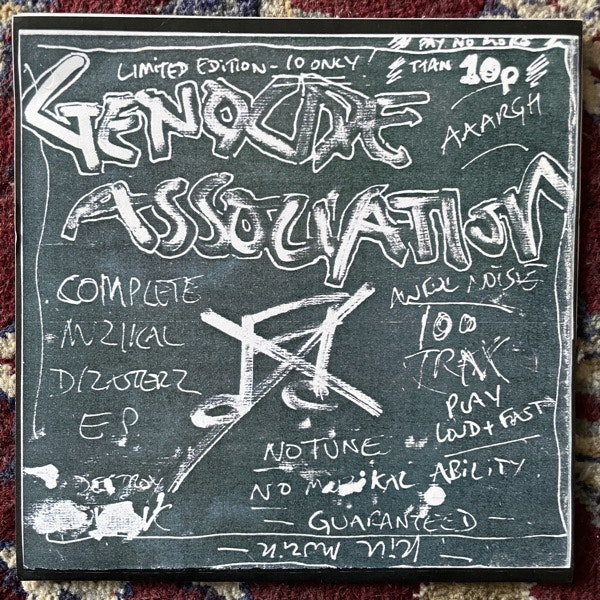 PAY NO MORE
THAN 10p
LIMITED EDITION - 10 ONLY!
GENOCIDE
ASSOCIATION
AAARGH
COMPLETE
MUZIKAL
DIZASTERZ
EP
AWFUL NOISE
100
TRAX
PLAY
LOUD + FAST
NO TUNE
NO MUZIKAL ABILITY
— GUARANTEED —
DESTROY